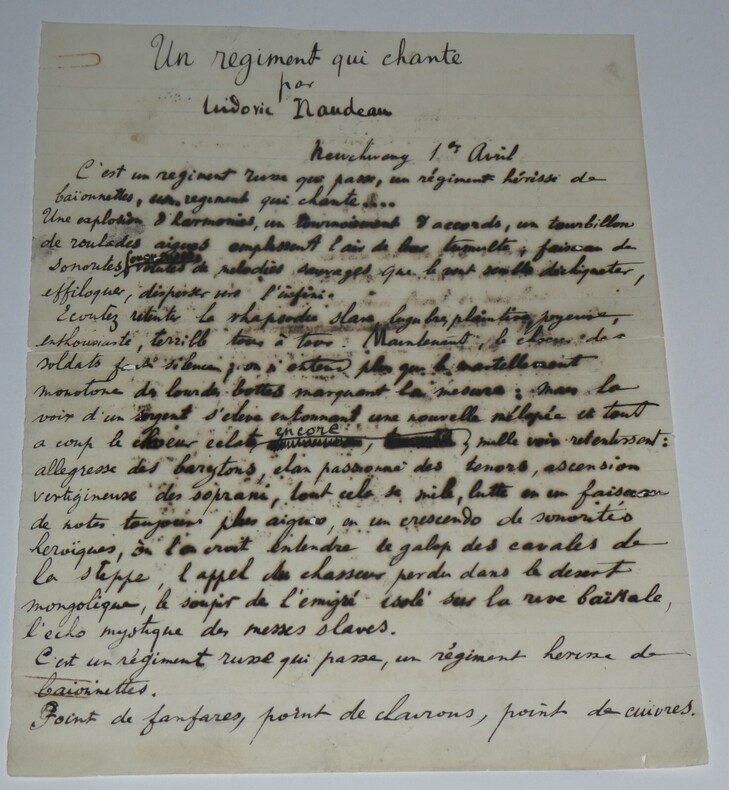 Un regiment qui chante
par
Ludovic Naudeau
Newchwang 1er Avril
C'est un regiment russe qui passe, un régiment hérissé de
baïonnettes, un regiment qui chante....
Une explosion d'harmonies, un tournoiement d'accords, un tourbillon
de roulades aigues emplissent l'air de leur tumulte ; faisceau de
sonorites, de melodies sauvages que le vent semble dechiqueter,
effiloquer, disperser vers l'infini.
Ecoutez retentir la rhapsodie slave, lugubre, plaintive, joyeuse,
enthousiaste, terrible tour à tour. Maintenant, le choeur des
soldats fait silence ; on n'entend plus que le martellement
monotone des lourdes bottes marquant la mesure ; mais la
voix d'un sergent s'eleve entonnant une nouvelle mélopée et tout
a coup le choeur eclate encore, mille voix retentissent :
allegresse des barytons, elan passionné des tenors, ascension
vertigineuse des soprani, tout cela se mêle, lutte en un faisceau
de notes toujours plus aigues, en un crescendo de sonorités
heroïques, où l'on croit entendre le galop des cavales de
la steppe, l'appel du chasseur perdu dans le desert
mongolique, le soupir de l'émigré isolé sur la rive baïkale,
l'echo mystique des messes slaves.
C'est un régiment russe qui passe, un régiment herisse de
baïonnettes.
Point de fanfares, point de clairons, point de cuivres.